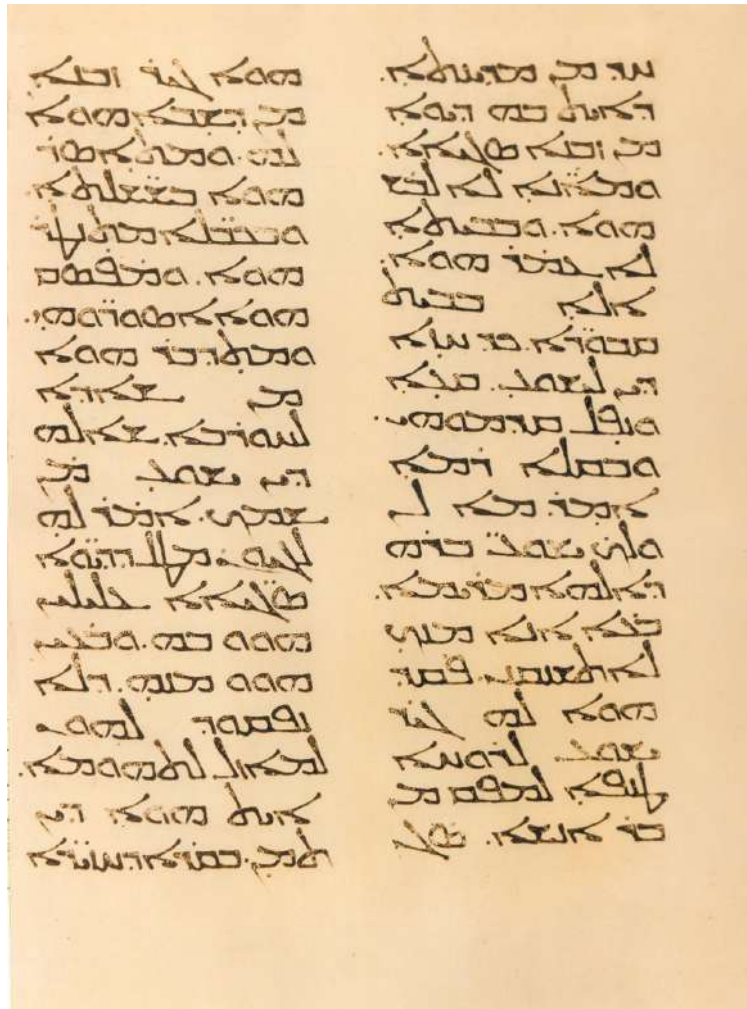 ܚܕ ܡܢ ܡܕܝܢܬܐ.
ܕܐܝܬ ܒܗ ܕܝܘܐ
ܡܢ ܙܒܢܐ ܣܓܝܐܐ.
ܘܡܐܢ̈ܐ ܠܐ ܠܒܫ
ܗܘܐ. ܘܒܒܝܬܐ
ܠܐ ܥܡܪ ܗܘܐ.
ܐܠܐ ܒܒܝܬ
ܩܒܘܪ̈ܐ. ܟܕ ܚܙܐ
ܕܝܢ ܠܝܫܘܥ. ܩܥܐ
ܘܢܦܠ ܩܕܡܘܗܝ.
ܘܒܩܠܐ ܪܡܐ
ܐܡܪ. ܡܐ ܠܢ
ܘܠܟ ܝܫܘܥ ܒܪܗ
ܕܐܠܗܐ ܡܪܝܡܐ.
ܒܥܐ ܐܢܐ ܡܢܟ
ܠܐ ܬܫܢܩܝܢܝ. ܦܩܕ
ܗܘܐ ܠܗ ܓܝܪ
ܝܫܘܥ ܠܪܘܚܐ
ܛܢܦܐ ܠܡܦܩ ܡܢ
ܒܪ ܐܢܫܐ. ܣܓܝ
ܗܘܐ ܓܝܪ ܙܒܢܐ
ܡܢ ܕܫܒܐ ܗܘܐ
ܠܗ. ܘܡܬܐܣܪ
ܗܘܐ ܒܫܫ̈ܠܬܐ.
ܘܒܟܒ̈ܠܐ ܡܬܢܛܪ
ܗܘܐ. ܘܡܦܣܩ
ܗܘܐ ܐܣܘܪ̈ܘܗܝ.
ܘܡܬܕܒܪ ܗܘܐ
ܡܢ ܫܐܕܐ
ܠܚܘܪܒܐ. ܫܐܠܗ
ܕܝܢ ܝܫܘܥ ܡܢ
ܫܡܟ. ܐܡܪ ܠܗ
ܠܓܝܘܢ. ܡܛܠ ܕܕܝ̈ܘܐ
ܣܓܝ̈ܐܐ ܥܠܝܠܝܢ
ܗܘܘ ܒܗ. ܘܒܥܝܢ
ܗܘܘ ܡܢܗ. ܕܠܐ
ܢܦܩܘܕ ܠܗܘܢ
ܠܡܐܙܠ ܠܬܗܘܡܐ.
ܐܝܬ ܗܘܐ ܕܝܢ
ܬܡܢ. ܒܩܪܐ ܕܚܙܝܪ̈ܐ